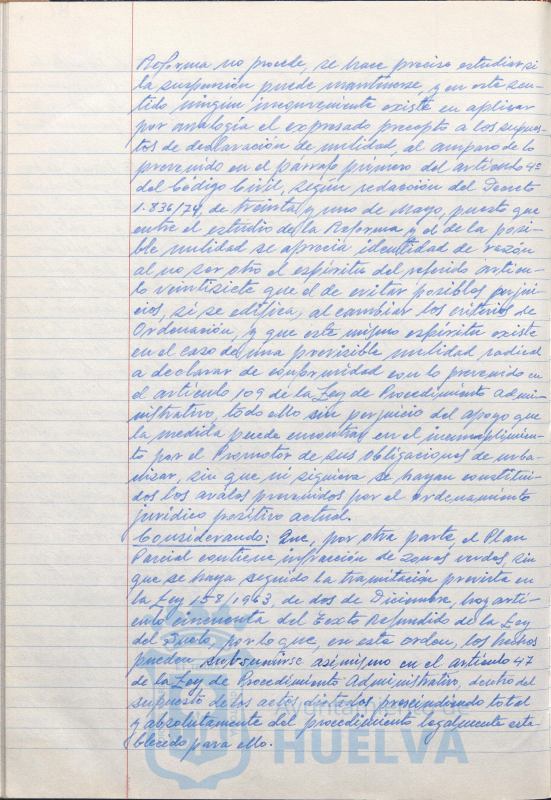 Reforma no procede, se hace preciso estudiar, si
la suspensión puede mantenerse, y en este sen-
tido ningún inconveniente existe en aplicar
por analogía el expresado precepto a los supues-
tos de declaración de nulidad, al amparo de lo
prevenido en el párrafo primero del artículo 4º
del Código Civil, según redacción del Decreto
1.836/74, de treinta y uno de Mayo, puesto que
entre el estudio de la Reforma y el de la posi-
ble nulidad se aprecia identidad de razón
al no ser otro el espíritu del referido artícu-
lo veintisiete que el de evitar posibles perjui-
cios, si se edifica, al cambiar los criterios de
Ordenación, y que este mismo espíritu existe
en el caso de una previsible nulidad radical
a declarar de conformidad con lo prevenido en
el artículo 109 de la Ley de Procedimiento admi-
nistrativo, todo ello sin perjuicio del apoyo que
la medida pueda encontrar en el incumplimien-
to por el Promotor de sus obligaciones de urba-
nizar, sin que ni siquiera se hayan constitui-
dos los avales prevenidos por el ordenamiento
jurídico positivo actual.
Considerando: Que, por otra parte, el Plan
Parcial contiene infracción de zonas verdes, sin
que se haya seguido la tramitación prevista en
la Ley 158/1963, de dos de Diciembre, hoy artí-
culo cincuenta del Texto Refundido de la Ley
del Suelo, por lo que, en este orden, los hechos
pueden subsumirse asimismo en el artículo 47
de la Ley de Procedimiento Administrativo, dentro del
supuesto de los actos dictados prescindiendo total
y absolutamente del procedimiento legalmente esta-
blecido para ello.
HUELVA